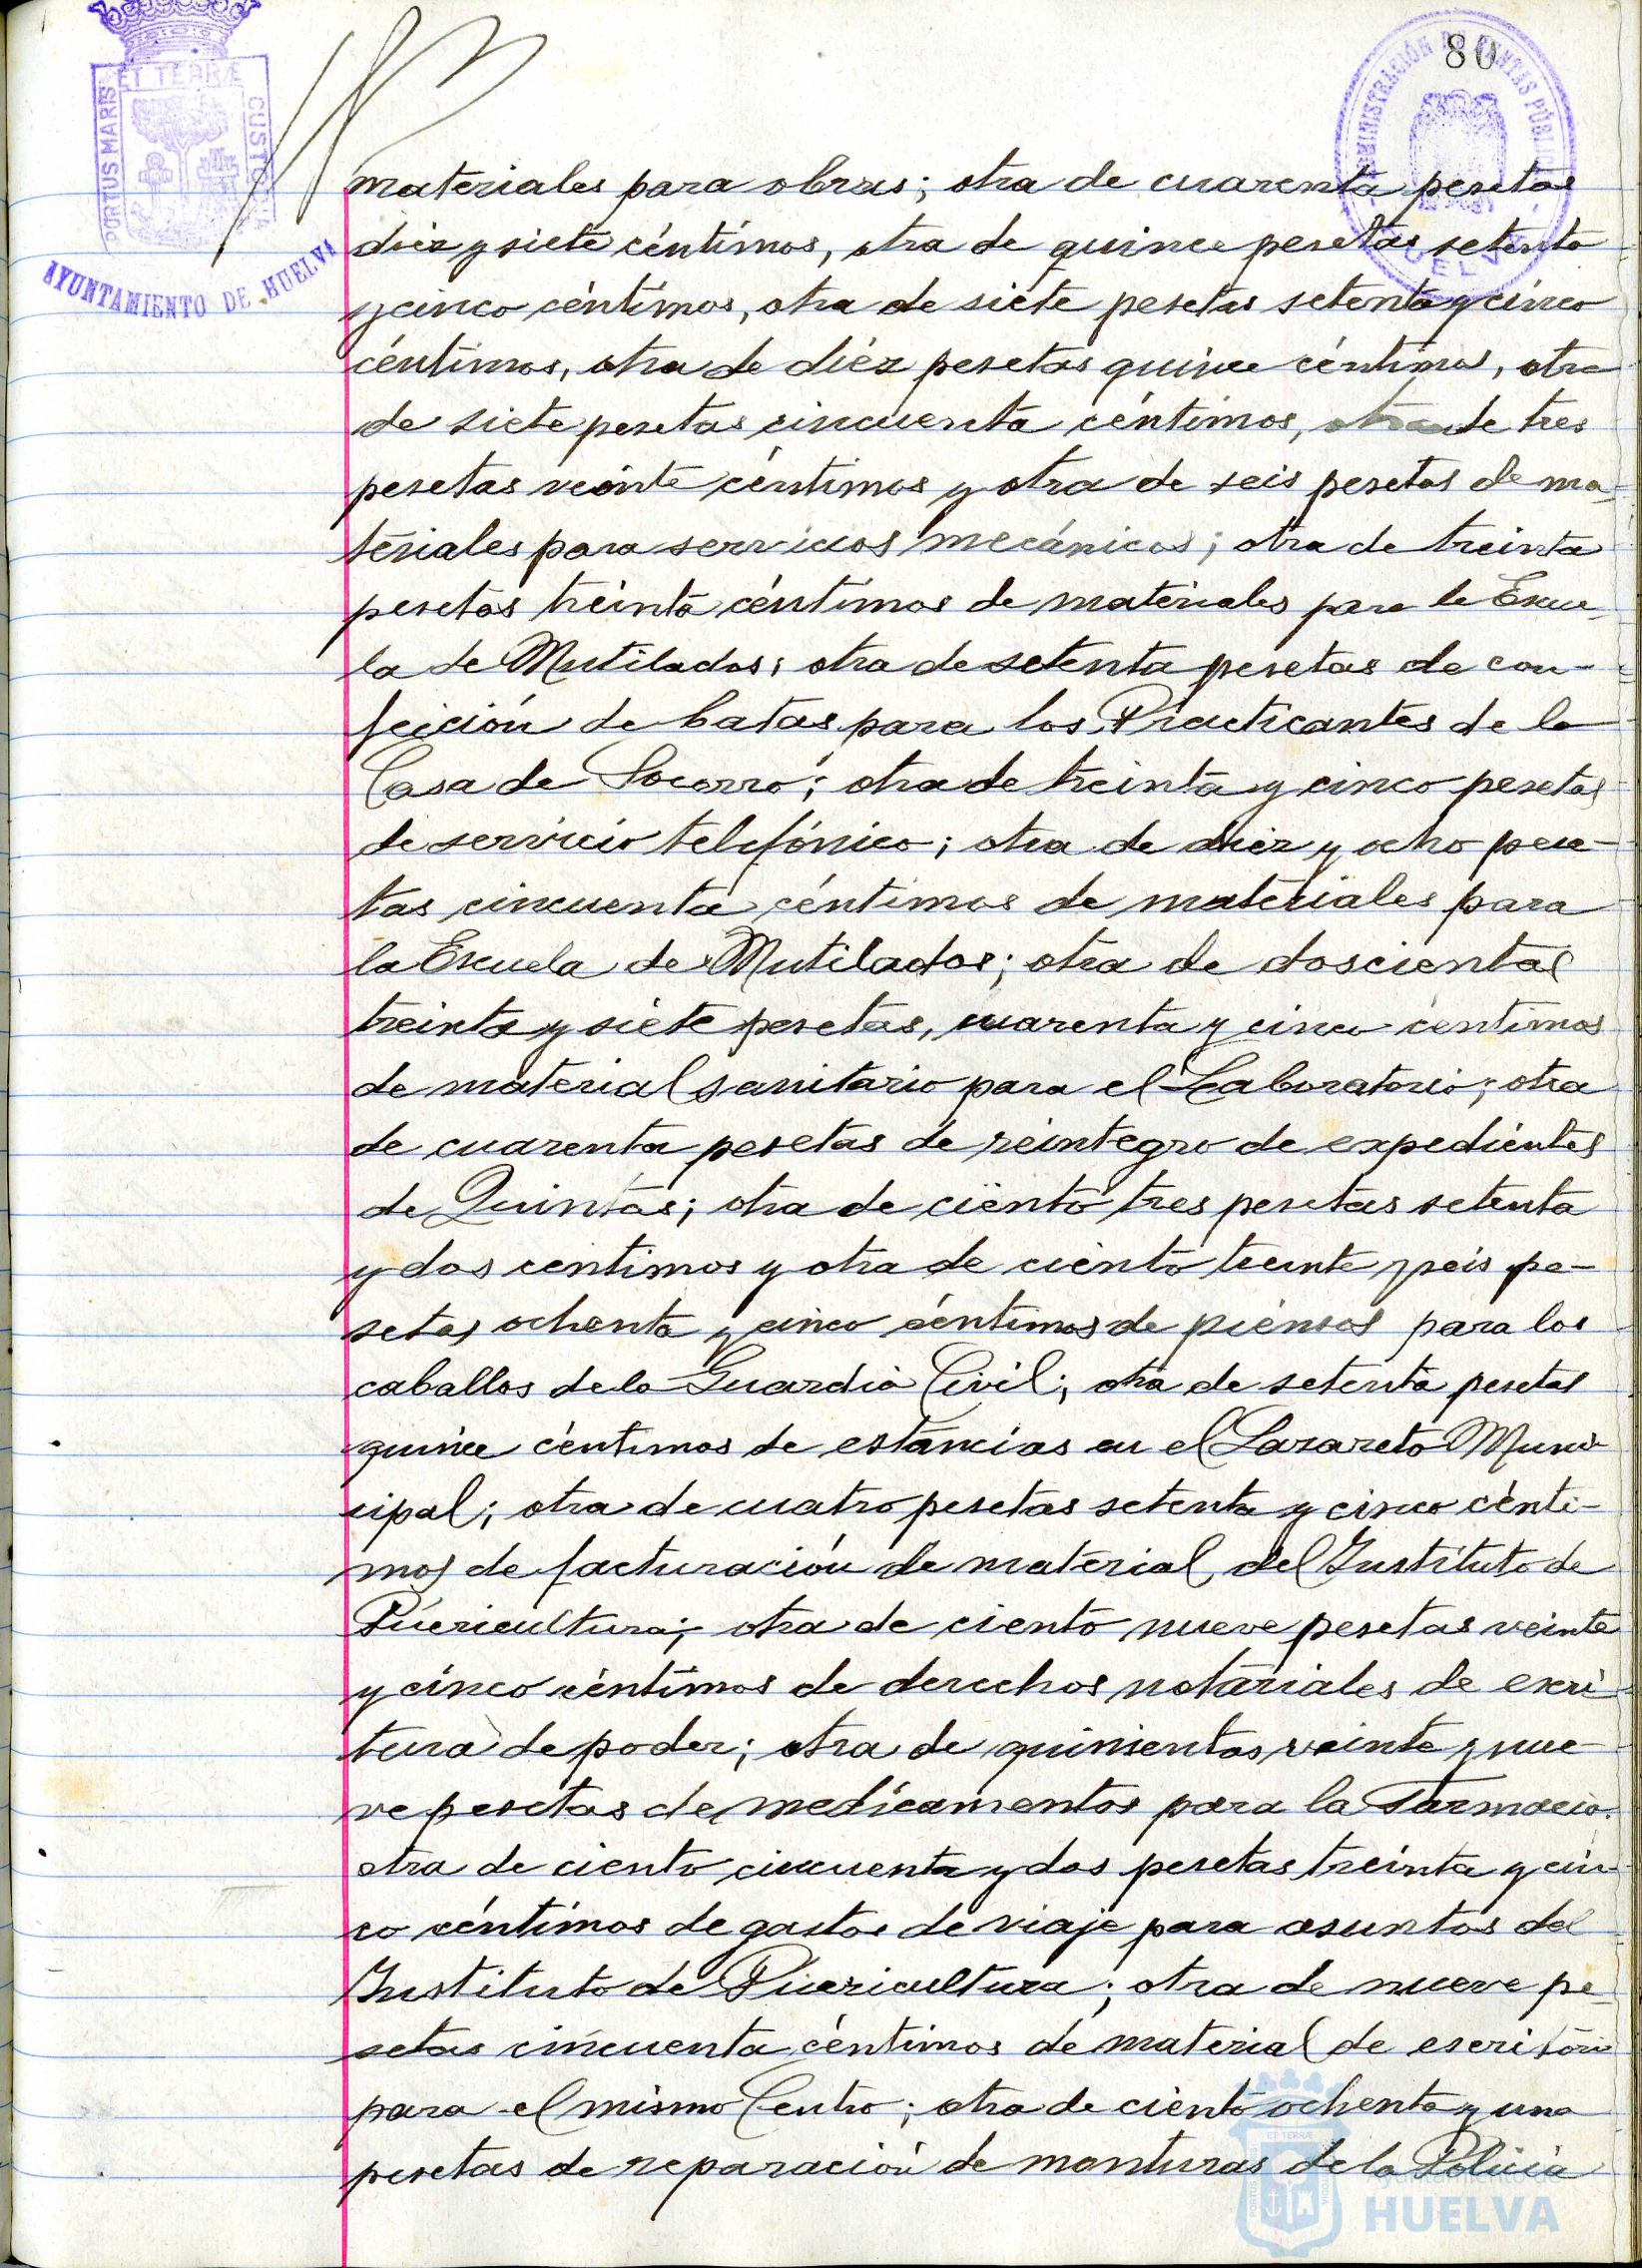 80
PORTUS MARIS ET TERRÆ CUSTODIA
AYUNTAMIENTO DE HUELVA
ADMINISTRACIÓN DE RENTAS PÚBLICAS
HUELVA
materiales para obras; otra de cuarenta pesetas
diez y siete céntimos, otra de quince pesetas setenta
y cinco céntimos, otra de siete pesetas setenta y cinco
céntimos, otra de diéz pesetas quince céntimos, otra
de siete pesetas cincuenta céntimos, otra de tres
pesetas veinte céntimos y otra de seis pesetas de ma-
teriales para servicios mecánicos; otra de treinta
pesetas treinta céntimos de materiales para la Escue-
la de Mutilados; otra de setenta pesetas de con-
fección de batas para los Practicantes de la
Casa de Socorro; otra de treinta y cinco pesetas
de servicio telefónico; otra de diez y ocho pese-
tas cincuenta céntimos de materiales para
la Escuela de Mutilados; otra de doscientas
treinta y siete pesetas, cuarenta y cinco centimos
de material sanitario para el Laboratorio; otra
de cuarenta pesetas de reintegro de expedientes
de Quintas; otra de ciento tres pesetas setenta
y dos centimos y otra de ciento treinta y seis pe-
setas ochenta y cinco céntimos de piensos para los
caballos de la Guardia Civil; otra de setenta pesetas
quince céntimos de estancias en el Lazareto Muni-
cipal; otra de cuatro pesetas setenta y cinco cénti-
mos de facturación de material del Instituto de
Puericultura; otra de ciento nueve pesetas veinte
y cinco céntimos de derechos notariales de escri-
tura de poder; otra de quinientas veinte y nue-
ve pesetas de medicamentos para la Farmacia.
otra de ciento cincuenta y dos pesetas treinta y cin-
co céntimos de gastos de viaje para asuntos del
Instituto de Puericultura; otra de nueve pe-
setas cincuenta céntimos de material de escritorio
para el mismo Centro; otra de ciento ochenta y una
pesetas de reparación de monturas de la Policía
HUELVA